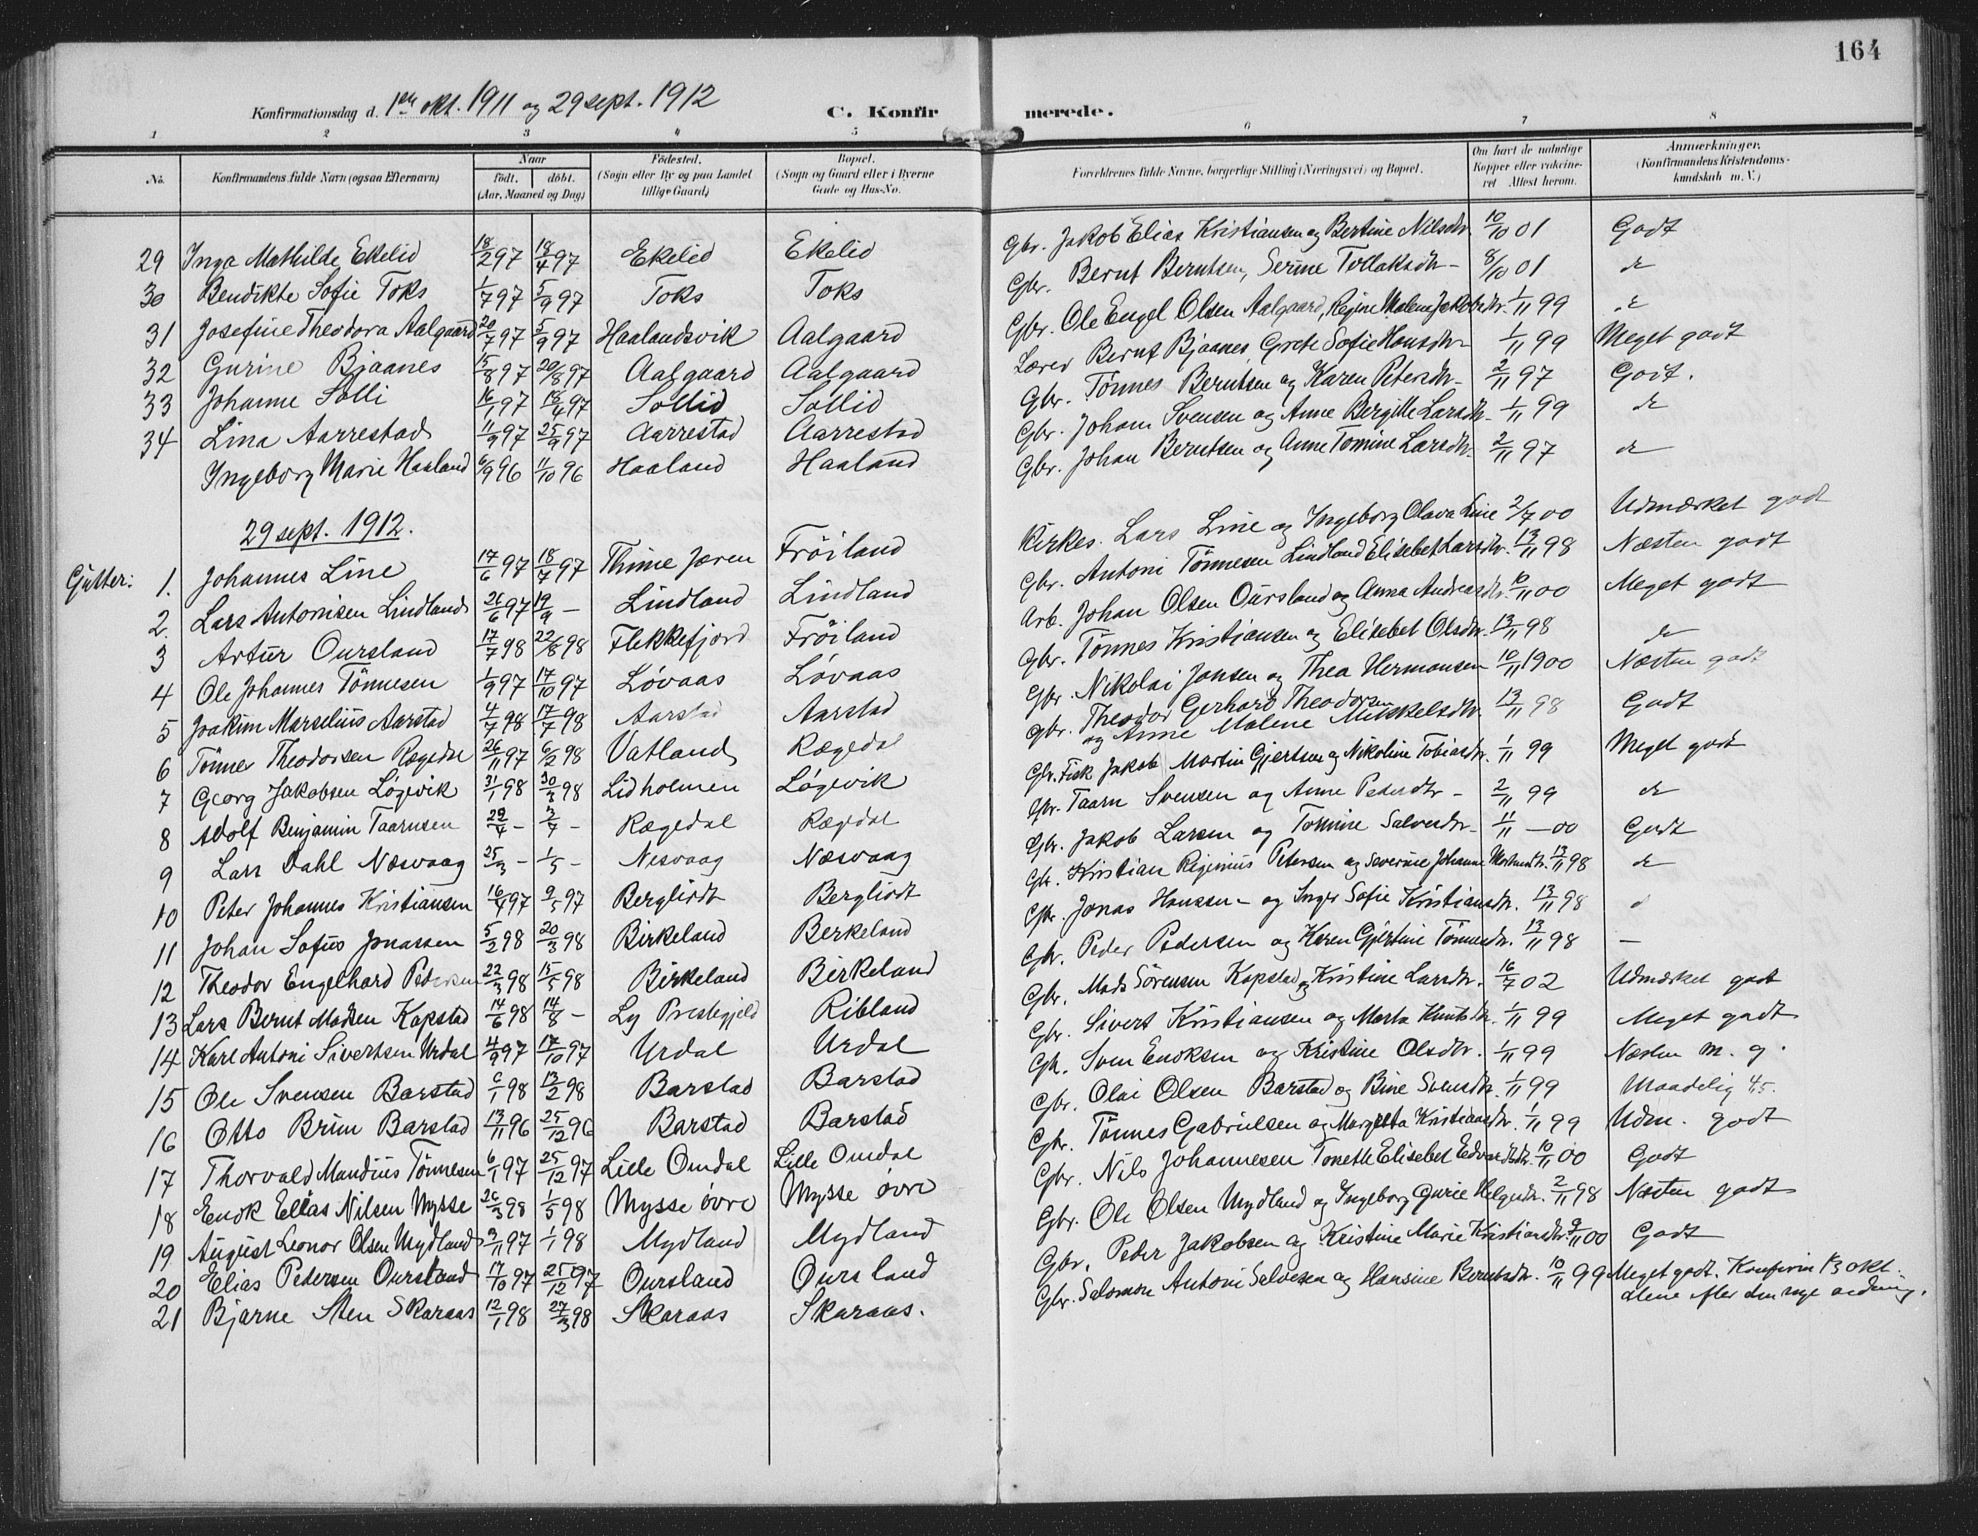 164
Konfirmationsdag d. 1ste okt. 1911 og 29 sept. 1912
C. Konfirmerede.
1 2 3 4 5 6 7 8
No.
Konfirmandens fulde Navn (ogsaa Efternavn)
Naar
født. døbt.
(Aar, Maaned og Dag)
Fødested.
(Sogn eller By og paa Landet
tillige Gaard)
Bopæl.
(Sogn og Gaard eller i Byerne
Gade og Hus-No.
Forældrenes fulde Navne, borgerlige Stilling (Næringsvei) og Bopæl.
Om havt de naturlige
Kopper eller vakcine-
ret Attest herom.
Anmærkninger.
(Konfirmandens Kristendoms-
kundskab m. V.)
29 Inga Mathilde Ekelid 18/2 97 18/4 97 Ekelid Ekelid Gbr. Jakob Elias Kristiansen og Bertine Nilsdtr. 10/10 01 Godt
30 Bendikte Sofie Toks 1/7 97 5/9 97 Toks Toks Gbr. Bernt Berntsen, Serine Tollaksdtr - 8/10 01 do
31 Josefine Theodora Aalgaard 20/7 97 5/9 97 Haalandsvik Aalgaard Gbr. Ole Engel Olsen Aalgaard, Regine Malene Jakobsdtr. 1/11 99 do
32 Gurine Bjaanes 15/8 97 20/8 97 Aalgaard Aalgaard Lærer Bernt Bjaanes, Grete Sofie Hansdtr 1/11 99 Meget godt
33 Johanne Solli 16/1 97 18/4 97 Sollid Sollid Gbr. Tönnes Berntsen og Karen Petersdtr - 2/11 97 Godt.
34 Lina Aarrestad 11/9 97 25/9 97 Aarrestad Aarrestad Gbr. Johan Svensen og Anne Bergitte Larsdtr - 1/11 99 do
Ingeborg Marie Haaland 6/9 96 11/10 96 Haaland Haaland Gbr. Johan Berntsen og Anne Tomine Larsdtr. 2/11 97 do
29 sept. 1912.
Gutter: 1. Johannes Line 17/6 97 18/7 97 Thime Jæren Fröiland Kirkes. Lars Line og Ingeborg Olava Line 2/7 00 Udmærket godt
2. Lars Antonisen Lindland 26/6 97 19/9 - Lindland Lindland Gbr. Antoni Tönnesen Lindland Elisebet Larsdtr. 13/11 98 Næsten godt
3 Artur Oursland 17/7 98 22/8 98 Flekkefjord Fröiland Arb. Johan Olsen Oursland og Anna Andreasdtr. 10/11 00 Meget godt
4 Ole Johannes Tönnesen 1/9 97 17/10 97 Løvaas Løvaas Gbr. Tönnes Kristiansen og Elisebet Olsdtr. 13/11 98 do
5 Joakim Marselius Aarstad 4/7 98 17/7 98 Aarstad Aarstad Gbr. Nikolai Jansen og Thea Hermansen 10/11 1900 Næsten godt
6 Tönnes Theodorsen Rægedal 26/11 97 6/2 98 Vatland Rægedal Gbr. Theodor Gerhard Theodorsen
og Anne Malene Mikkelsdtr. 13/11 98 Godt
7 Georg Jakobsen Løgevik 31/1 98 30/3 98 Lidholmen Løgevik Gbr. Fisk Jakob Martin Gjertsen og Nikoline Tobiasdtr. 1/11 99 Meget godt
8 Adolf Benjamin Taarnsen 29/4 - 3/7 - Rægedal Rægedal Gbr. Taarn Svensen og Anne Pedersdtr - 2/11 99 do
9 Lars Dahl Næsvaag 25/3 - 1/5 - Nesvaag Næsvaag Gbr. Jakob Larsen og Tomine Salvesdtr - 11/11 - 00 Godt
10 Peter Johannes Kristiansen 16/4 97 9/5 97 Bergliodt Bergliodt Gbr. Kristian Reginius Petersen og Severine Johanne 13/11 98 do
11 Johan Sofus Jonassen 5/2 98 20/3 98 Birkeland Berkeland Gbr. Jonas Hanssen - og Inger Sofie Kristiansdtr. 13/11 98 d
12 Theodor Engelhard Pedersen 22/3 98 15/5 98 Birkeland Birkeland Gbr. Peder Pedersen og Karen Gjertine Tönnesdtr. 13/11 98 -
13 Lars Bernt Madsen Kapstad 14/6 98 14/8 - Ly Prestegjeld Ribland Gbr. Mads Sörensen Kapstad og Kristine Larsdtr. 16/7 02 Udmærket godt
14 Karl Antoni Sivertsen Urdal 4/9 97 17/10 97 Urdal Urdal Gbr. Sivert Kristiansen og Marta Knutsdtr. 1/11 99 Meget godt
15 Ole Svensen Barstad 6/1 98 13/2 98 Barstad Barstad Gbr. Sven Enoksen og Kristine Olsdtr. 1/11 99 Næsten m. g.
16 Otto Brun Barstad 13/11 96 25/12 96 Barstad Barstad Gbr. Olai Olsen Barstad og Bine Svensdtr. 1/11 99 Maadelig 4.5.
17 Thorvald Mandius Tönnesen 6/1 97 25/12 97 Lille Omdal Lille Omdal Gbr. Tönnes Gabrielsen og Margreta Kristiansdtr. 1/11 99 Udm. godt
18 Enok Elias Nilsen Mysse 26/3 98 1/5 98 Mysse övre Mysse övre Gbr. Nils Johannesen Tonette Elisebet Edvardsdtr. 10/11 00 Godt
19 August Leonor Olsen Mydland 9/11 97 1/1 98 Mydland Mydland Gbr. Ole Olsen Mydland og Ingeborg Gurie Helgesdtr. 2/11 98 Næsten godt
20 Elias Pedersen Oursland 17/10 97 25/12 97 Oursland Oursland Gbr. Peder Jakobsen og Kristine Marie Kristiansdtr. 9/11 00 Godt
21 Bjarne Sten Skaraas 12/1 98 27/3 98 Skaraas Skaraas. Gbr. Salomon Antoni Salvesen og Hansine Berntsdtr. 10/11 99 Meget godt. Konfirm 13 okt.
alene efter den nye ordning.